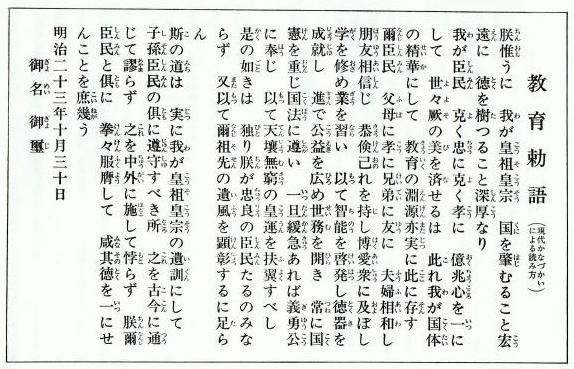 教育勅語
(現代かなづかい
による読み方)
朕惟うに 我が皇祖皇宗 国を肇むること宏
遠に 徳を樹つること深厚なり
我が臣民 克く忠に克く孝に 億兆心を一に
して 世々厥の美を済せるは 此れ我が国体
の精華にして 教育の淵源亦実に此に存す
爾臣民 父母に孝に兄弟に友に 夫婦相和し
朋友相信じ 恭倹己れを持し博愛衆に及ぼし
学を修め業を習い 以て智能を啓発し徳器を
成就し 進で公益を広め世務を開き 常に国
憲を重じ国法に遵い 一旦緩急あれば義勇公
に奉じ 以て天壤無窮の皇運を扶翼すべし
是の如きは 独り朕が忠良の臣民たるのみな
らず 又以て爾祖先の遺風を顕彰するに足ら
ん
斯の道は 実に我が皇祖皇宗の遺訓にして
子孫臣民の俱に遵守すべき所 之を古今に通
じて謬らず 之を中外に施して悖らず 朕爾
臣民と俱に 拳々服膺して 咸其徳を一にせ
んことを庶幾う
明治二十三年十月三十日
御名 御璽